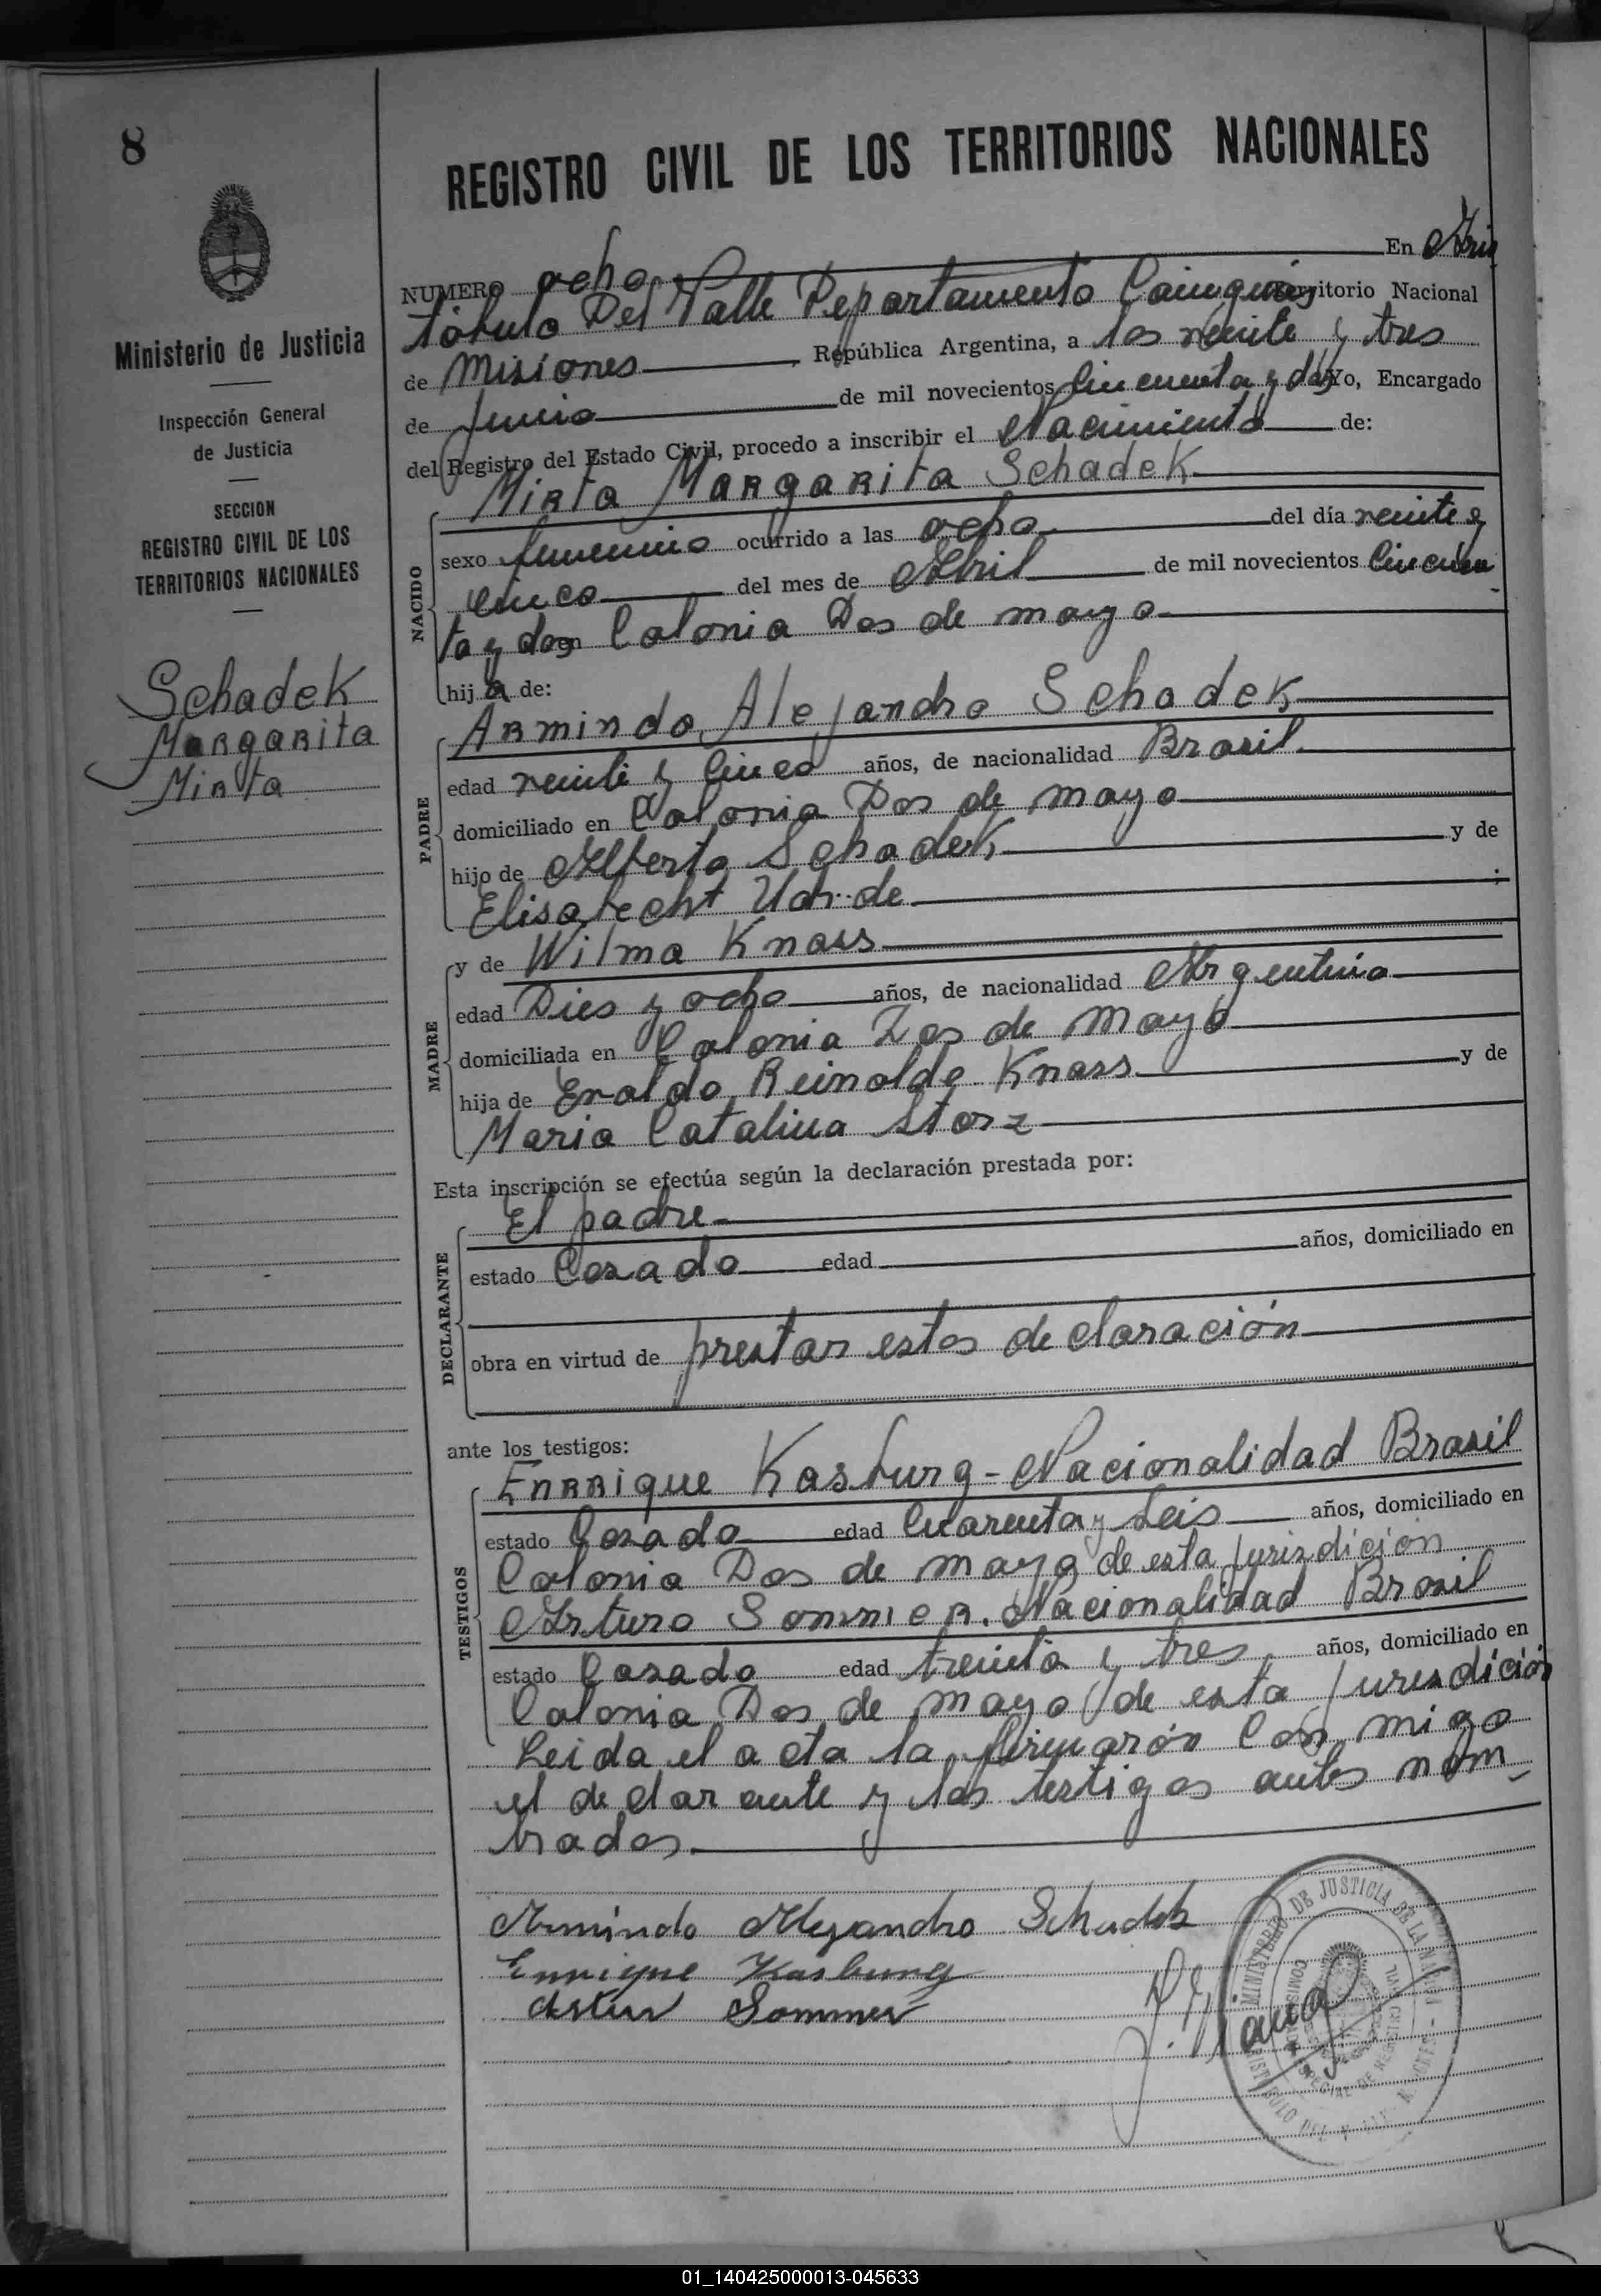 8
REGISTRO CIVIL DE LOS TERRITORIOS NACIONALES
Ministerio de Justicia
Inspección General
de Justicia
SECCION
REGISTRO CIVIL DE LOS
TERRITORIOS NACIONALES
Schadek
Margarita
Mirta
NUMERO ocho En Aris
tóbulo Del Valle Departamento Cainguás Territorio Nacional
de Misiones República Argentina, a los veinte y tres
de Junio de mil novecientos cincuenta y dos Yo, Encargado
del Registro del Estado Civil, procedo a inscribir el Nacimiento de:
NACIDO
Mirta Margarita Schadek
sexo femenino ocurrido a las ocho del día veinte y
cinco del mes de Abril de mil novecientos cincuen
ta y dos en Colonia Dos de mayo
hij a de:
PADRE
Armindo Alejandro Schadek
edad veinte y cinco años, de nacionalidad Brasil
domiciliado en Colonia Dos de mayo
hijo de Alberto Schadek y de
Elisabecht ;
MADRE
y de Wilma Knass
edad Dies y ocho años, de nacionalidad Argentina
domiciliada en Colonia Dos de mayo
hija de Evaldo Reinoldo Knass y de
Maria Catalina Storz
Esta inscripción se efectúa según la declaración prestada por:
DECLARANTE
El padre
estado Casado edad años, domiciliado en
obra en virtud de prestar estos declaración
ante los testigos:
TESTIGOS
Enrrique Kasburg - Nacionalidad Brasil
estado Casado edad cuarenta y seis años, domiciliado en
Colonia Dos de mayo de esta jurizdición
Arturo Sommer. Nacionalidad Brasil
estado Casado edad treinta y tres años, domiciliado en
Colonia Dos de mayo de esta jurisdición
Leida el acta la firmarón con migo
el declarante y los testigos antes nom-
brados.
Armindo Alejandro Schadek
Enrique Kasburg
Artur Sommer
MINISTERIO DE JUSTICIA DE LA NACION
ESPECIAL DE REGISTRO CIVIL
01_140425000013-045633